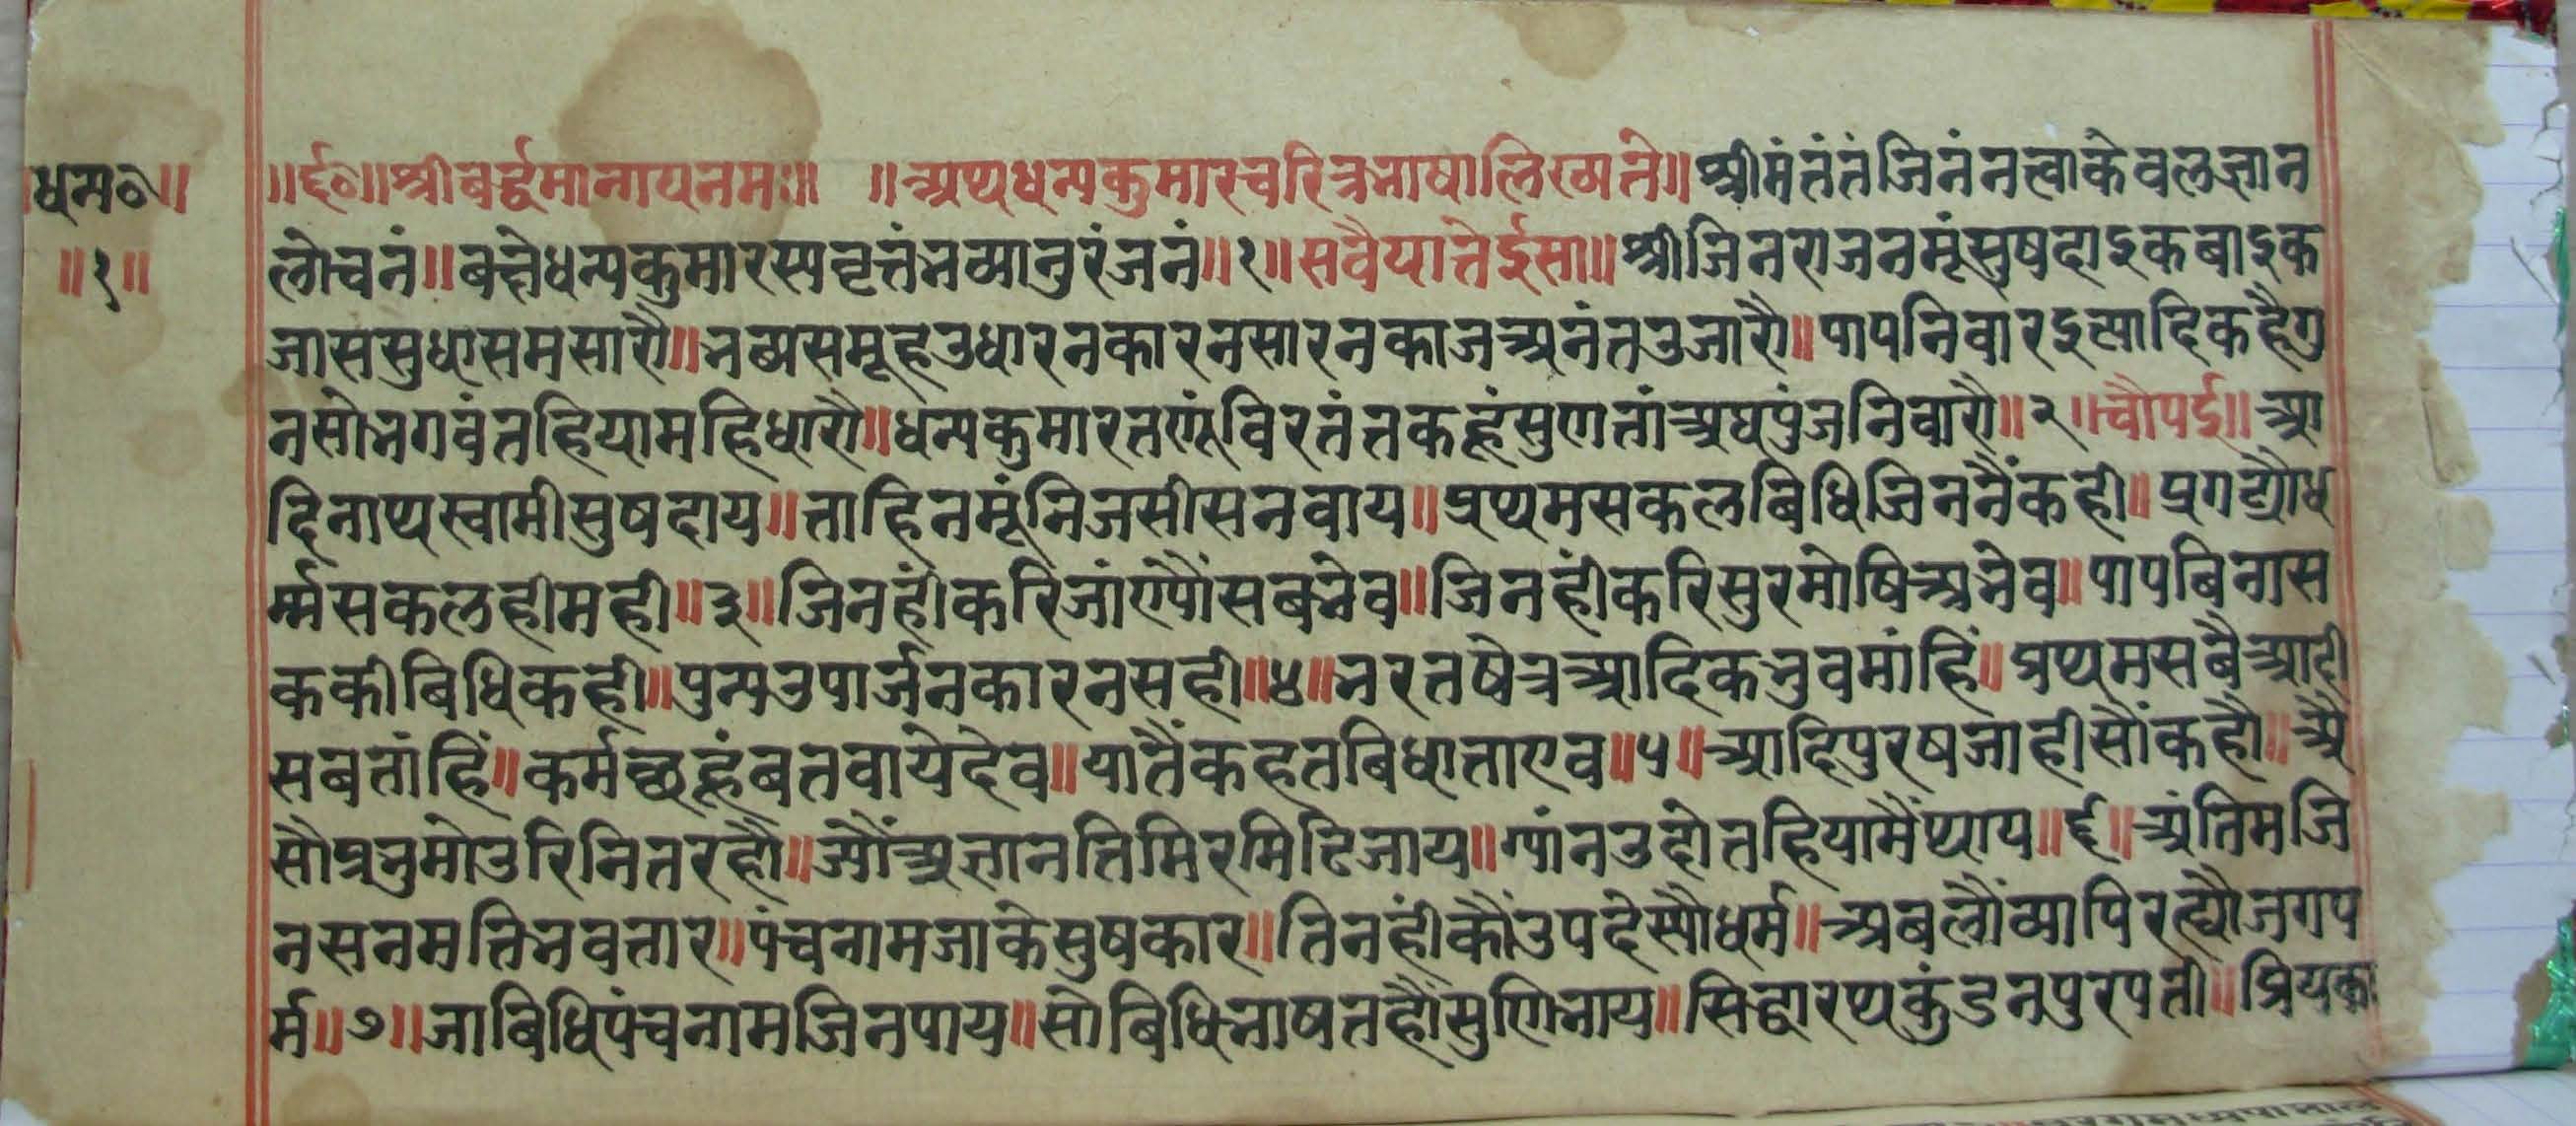 धन्य०॥
॥१॥
॥ई०॥श्रीबर्द्धमानायनमः॥ ॥अथधन्यकुमारचरित्रभाषालिख्यते॥श्रीमंतंतंजिनंनत्वाकेवलज्ञान
लोचनं॥बक्ष्येधन्यकुमारस्यवृत्तंभव्यानुरंजनं॥१॥सवैयातेईसा॥श्रीजिनराजनमूंसुषदाइकबाइक
जाससुधासमसारौ॥भव्यसमूहउधारनकारनसारनकाजअनंतउजारौ॥पापनिवारइत्यादिकहैगु
नसोभगवंतहियामहिधारौ॥धन्यकुमारतणूंविरतंतकहूंसुणतांअघपुंजनिवारौ॥२॥चौपई॥आ
दिनाथस्वामीसुषदाय॥ताहिनमूंनिजसीसनवाय॥प्रथमसकलबिधिजिननैंकही॥प्रगट्यौध
र्म्मसकलहीमही॥३॥जिनहींकरिजांण्यौंसबभेव॥जिनहींकरिसुरमोषिअभेव॥पापबिनास
ककीबिधिकही॥पुन्यउपार्जनकारनसही॥४॥भरतषेत्रआदिकभुवमांहिं॥प्रथमसबैआही
सबतांहिं॥कर्मच्छहूंबतवायेदेव॥यातैंकहतबिधाताएव॥५॥आदिपुरषजाहीसौंकहौ॥अै
सौप्रभुमोउरिनितरहौ॥ज्यौंअज्ञानतिमिरमिटिजाय॥ग्यांनउदोतहियामैंथाय॥६॥अंतिमजि
नसनमतिभवतार॥पंचनामजाकेसुषकार॥तिनहींकौंउपदेस्यौधर्म॥अबलौंव्यापिरह्यौजगप
र्म॥७॥जाबिधिपंचनामजिनपाय॥सोबिधिभाषतहौंसुणिभाय॥सिद्धारथकुंडनपुरपती॥प्रियका